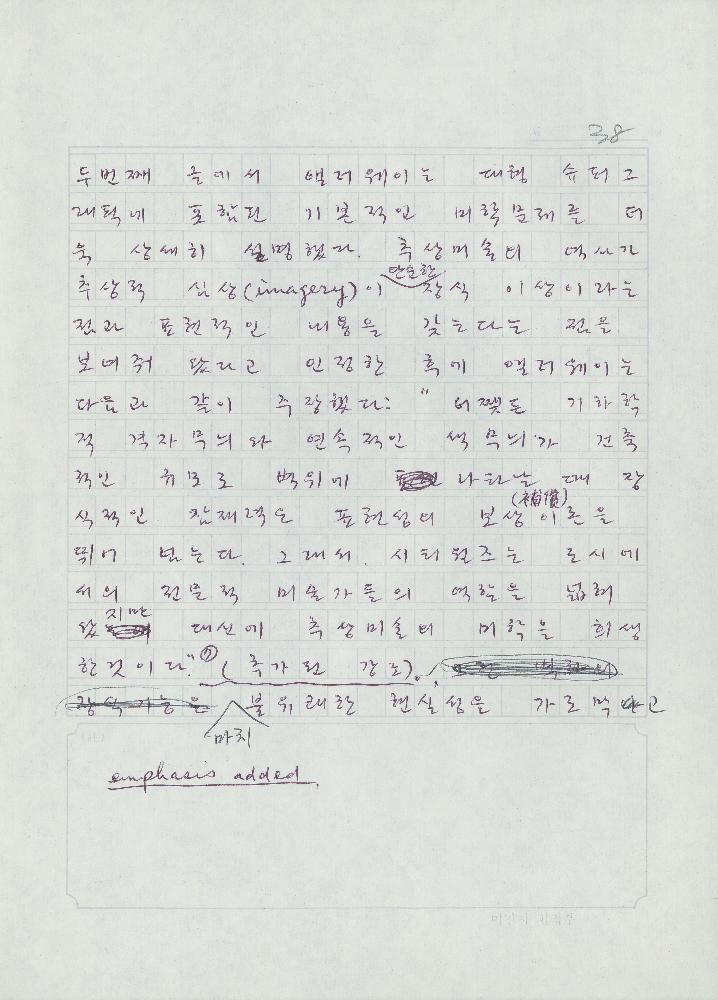 38
두번째 글에서 앨러웨이는 대형 슈퍼그
래픽에 포함된 기본적인 미학문제를 더
욱 상세히 설명했다. 추상미술의 역사가
단순한
추상적 심상(imagery)이 장식 이상이라는
점과 표현적인 내용을 갖는다는 점을
보여줘 왔다고 인정한 후에 앨러웨이는
다음과 같이 주장했다: " 어쨌든 기하학
적 격자무늬와 연속적인 색무늬가 건축
적인 규모로 벽위에 나타날 때 장
(補償)
식적인 잠재력은 표현성의 보상이론을
뛰어 넘는다. 그래서, 시티월즈는 도시에
서의 전문적 미술가들의 역할을 넓혀
지만
왔 대신에 추상미술의 미학을 희생
한것이다."⑦ (추가된 강조).
불유쾌한 현실성을 가로막고
마치
emphasis added.